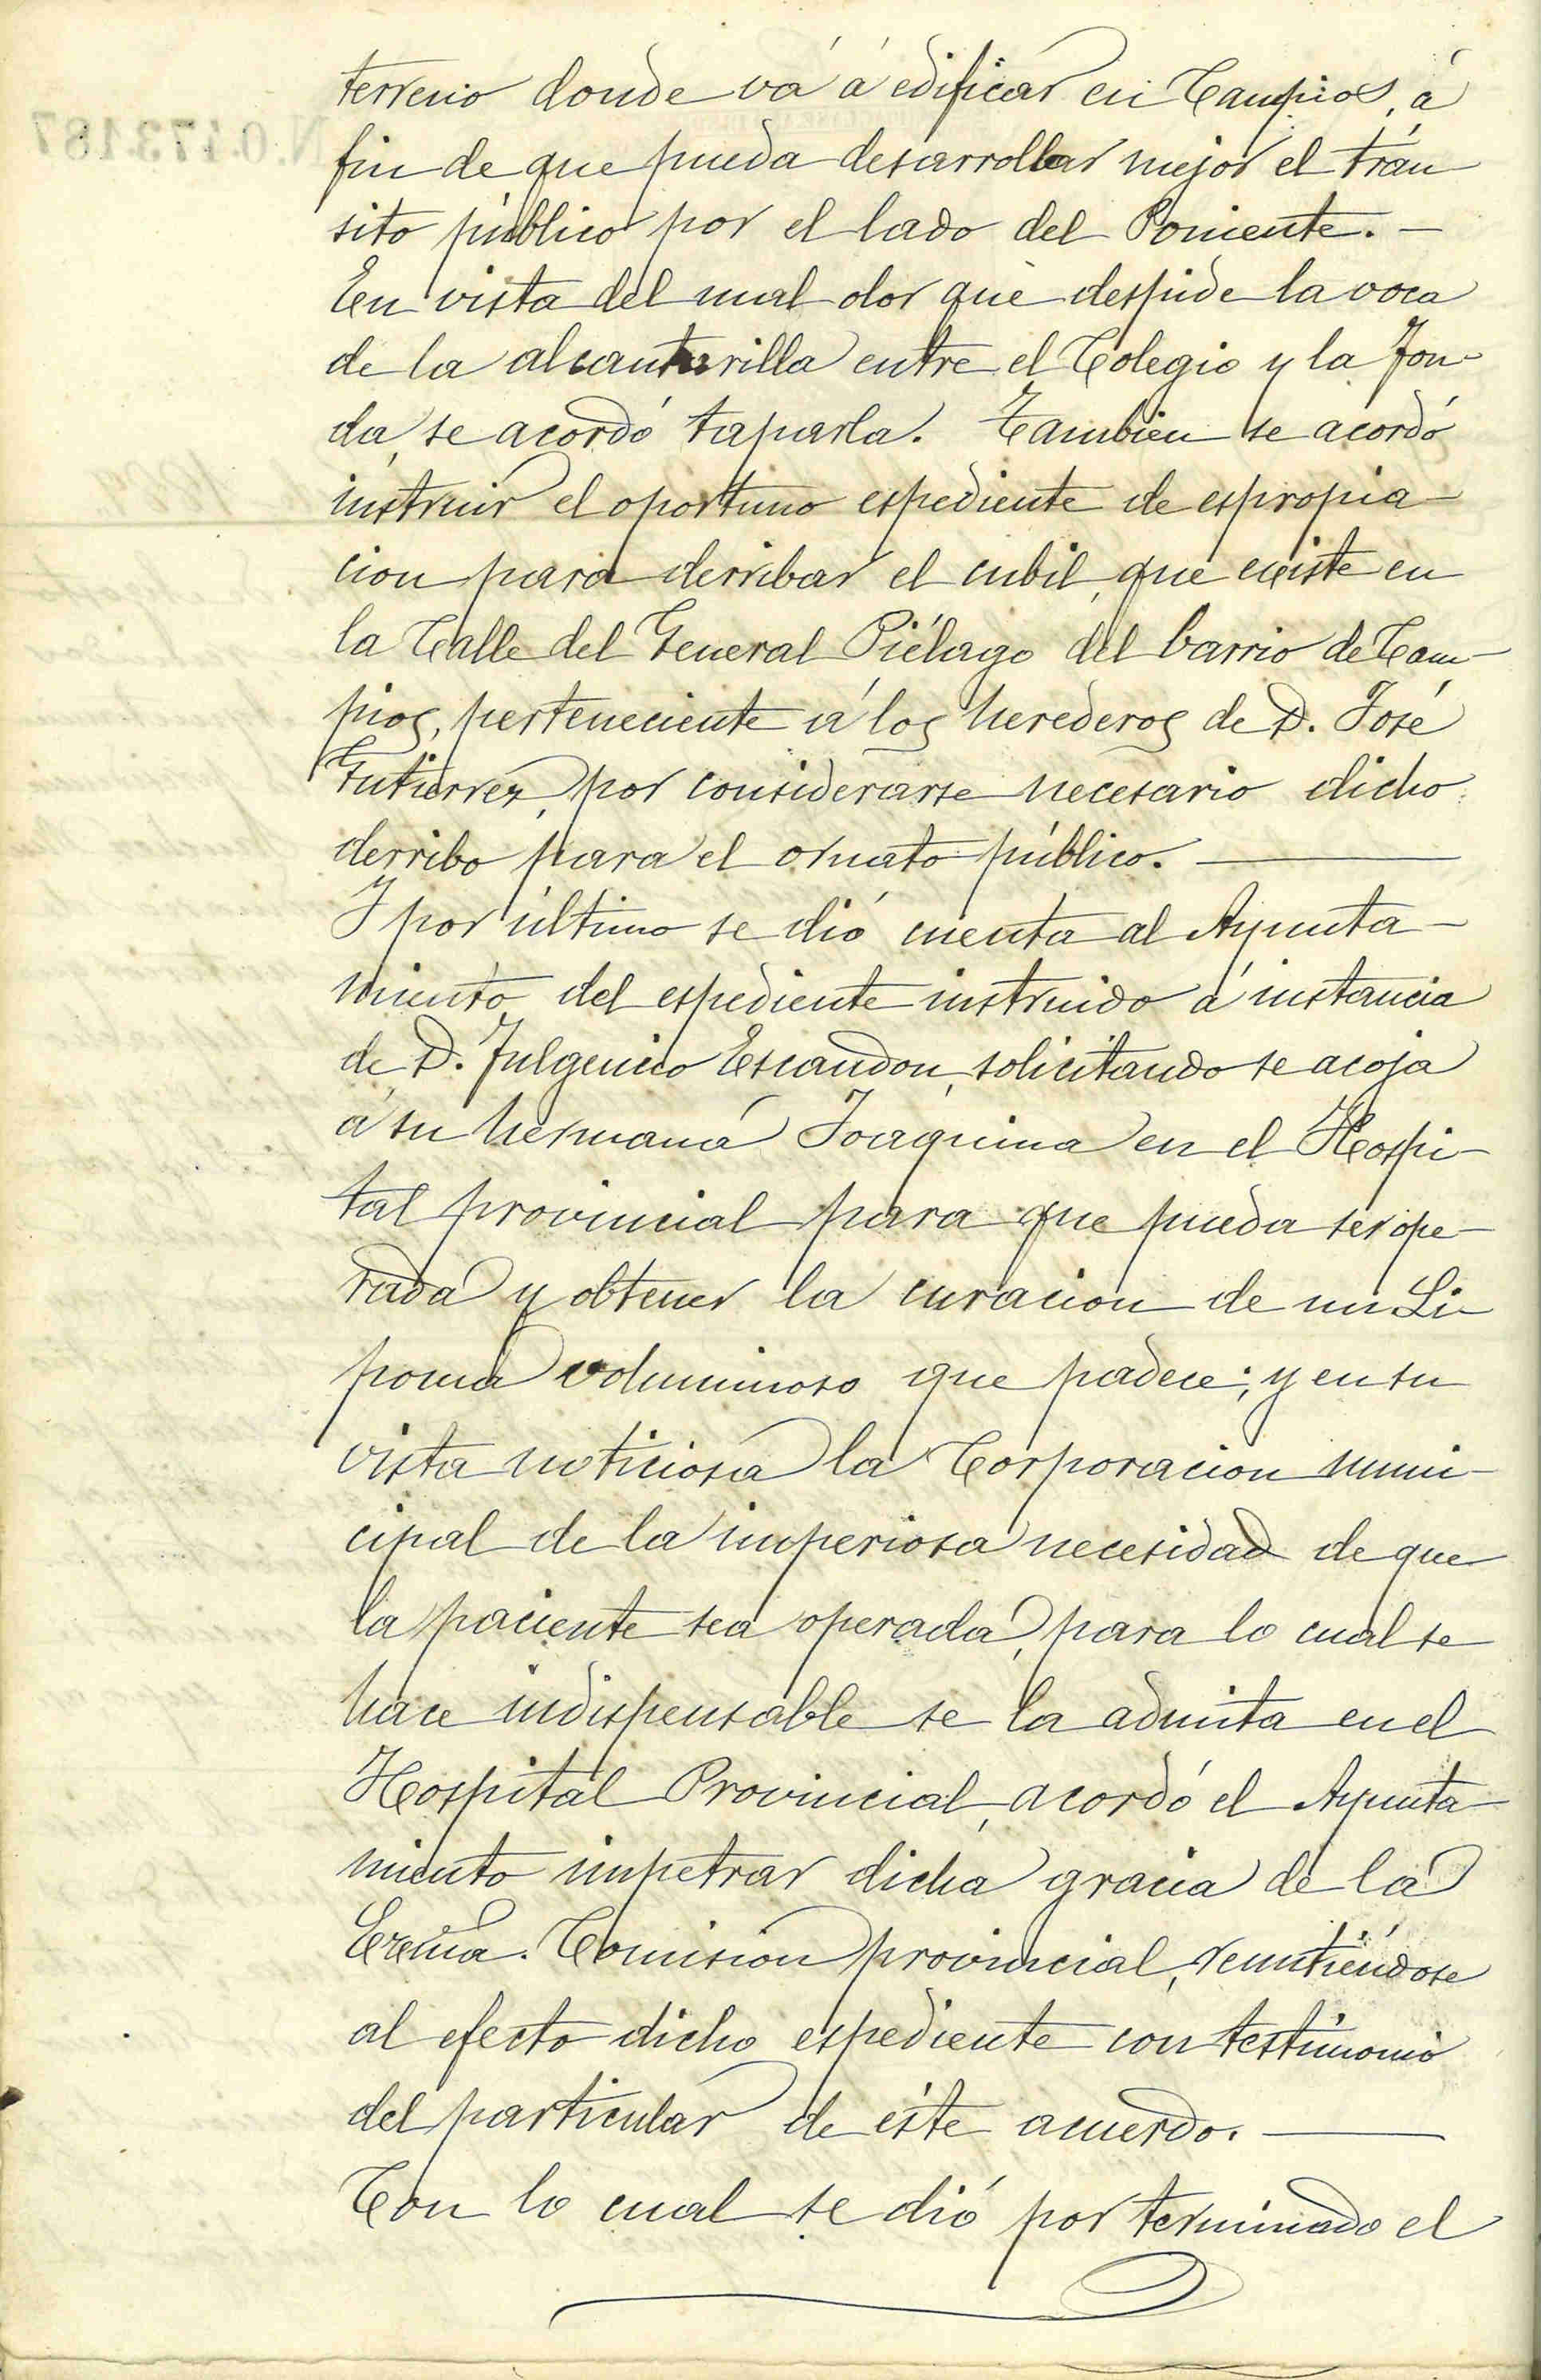 terreno donde vá á edificar en Campios, á
fin de que pueda desarrollar mejor el trán
sito público por el lado del Poniente. —
En vista del mal olor que despide la voca
de la alcantarilla entre el Colegio y la Fon-
da, se acordó taparla. Tambien se acordó
instruir el oportuno espediente de espropia-
cion para derribar el cubil, que existe en
la Calle del General Piélago del barrio de Cam-
pios, perteneciente á los herederos de D. José
Gutierrez, por considerarse necesario dicho
derribo para el ornato público. —
Y por último se dió cuenta al Ayunta-
miento del espediente instruido á instancia
de D. Fulgencio Escandon, solicitando se acoja
á su hermana Joaquina en el Hospi-
tal provincial para que pueda ser ope-
rada y obtener la curacion de un Li-
poma voluminoso que padece; y en su
vista noticiosa la Corporacion muni-
cipal de la imperiosa necesidad de que
la paciente sea operada, para lo cual se
hace indispensable se la admita en el
Hospital Provincial, acordó el Ayunta-
miento impetrar dicha gracia de la
Excma. Comision provincial, remitiéndose
al efecto dicho espediente con testimonio
del particular de éste acuerdo. —
Con lo cual se dió por terminado el